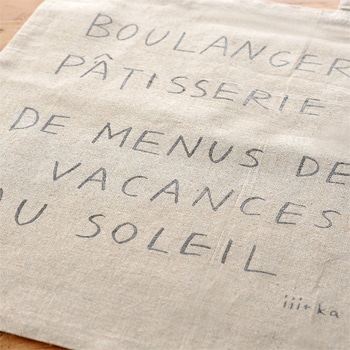 BOULANGER
PÂTISSERIE
DE MENUS DE
VACANCES
AU SOLEIL
iii+ka